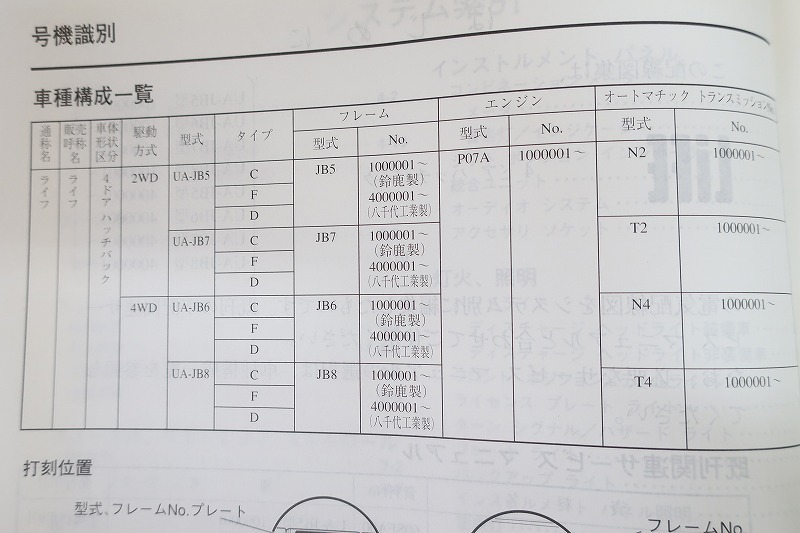 号機識別
車種構成一覧
通称名
販売呼称名
車体形状区分
駆動方式
型式
タイプ
フレーム
型式
No.
エンジン
型式
No.
オートマチック トランスミッション
型式
No.
ライフ
ライフ
4ドア ハッチバック
2WD
UA-JB5
C
F
D
JB5
1000001～
(鈴鹿製)
4000001～
(八千代工業製)
P07A
1000001～
N2
1000001～
UA-JB7
C
F
D
JB7
1000001～
(鈴鹿製)
4000001～
(八千代工業製)
T2
1000001～
4WD
UA-JB6
C
F
D
JB6
1000001～
(鈴鹿製)
4000001～
(八千代工業製)
N4
1000001～
UA-JB8
C
F
D
JB8
1000001～
(鈴鹿製)
4000001～
(八千代工業製)
T4
1000001～
打刻位置
型式、フレームNo.プレート
フレームNo.